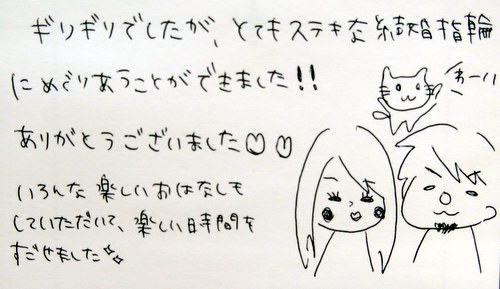 ギリギリでしたが、とてもステキな結婚指輪
にめぐりあうことができました!!
わーい
ありがとうございました♡♡
いろんな楽しいおはなしも
していただいて、楽しい時間を
すごせました